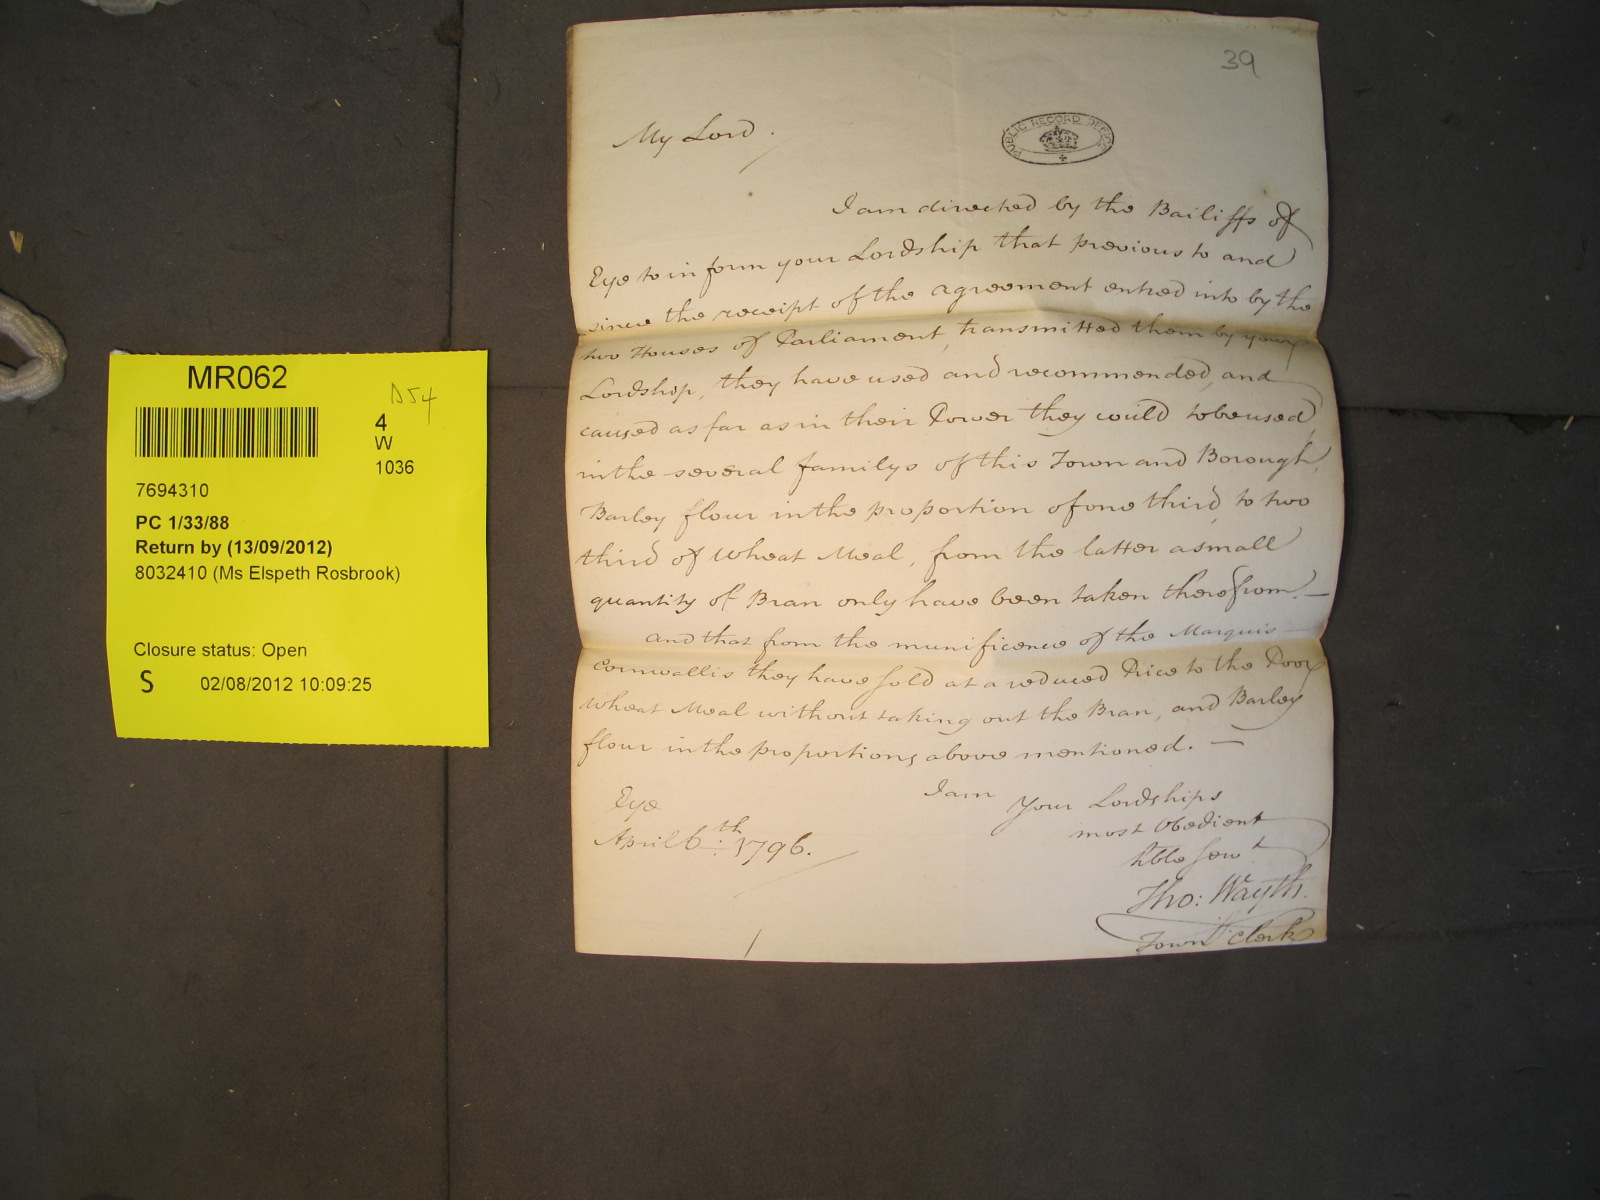 MR062
D54
4
W
1036
7694310
PC 1/33/88
Return by (13/09/2012)
8032410 (Ms Elspeth Rosbrook)
Closure status: Open
S 02/08/2012 10:09:25
39
PUBLIC RECORD OFFICE
My Lord.
I am directed by the Bailiffs of
Eye to inform your Lordship that previous to and
since the receipt of the agreement entred into by the
two Houses of Parliament, transmitted them by your
Lordshop, they have used and recommended, and
caused as far as in their Power they could to be used
in the several familys of this Town and Borough,
Barley flour in the proportion of one third, to two
third of Wheat Meal, from the latter a small
quantity of Bran only have been taken therefrom. —
and that from the munificence of the Marquis —
Cornwallis they have sold at a reduced Price to the Poor
Wheat Meal without taking out the Bran, and Barley
flour in the proportions above mentioned. —
I am
Your Lordships
most Obedient
hble Servt
Tho: Wayth.
Town Clerk
Eye
April 6th: 1796.